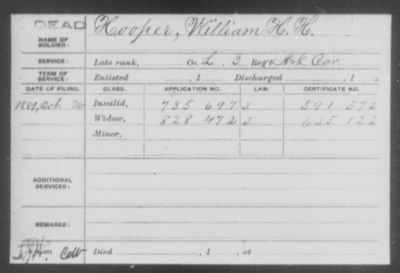 DEAD
NAME OF SOLDIER: Hooper, William H. H.
SERVICE: Late rank, Co. L. 3 Reg't Ark Cav.
TERM OF SERVICE: Enlisted , 1 Discharged , 1
DATE OF FILING. CLASS. APPLICATION NO. LAW. CERTIFICATE NO.
Oct. 26 Invalid, 735 697 591 572
Widow, 828 472 625 122
Minor,
ADDITIONAL SERVICES:
REMARKS:
Died , 1 , at